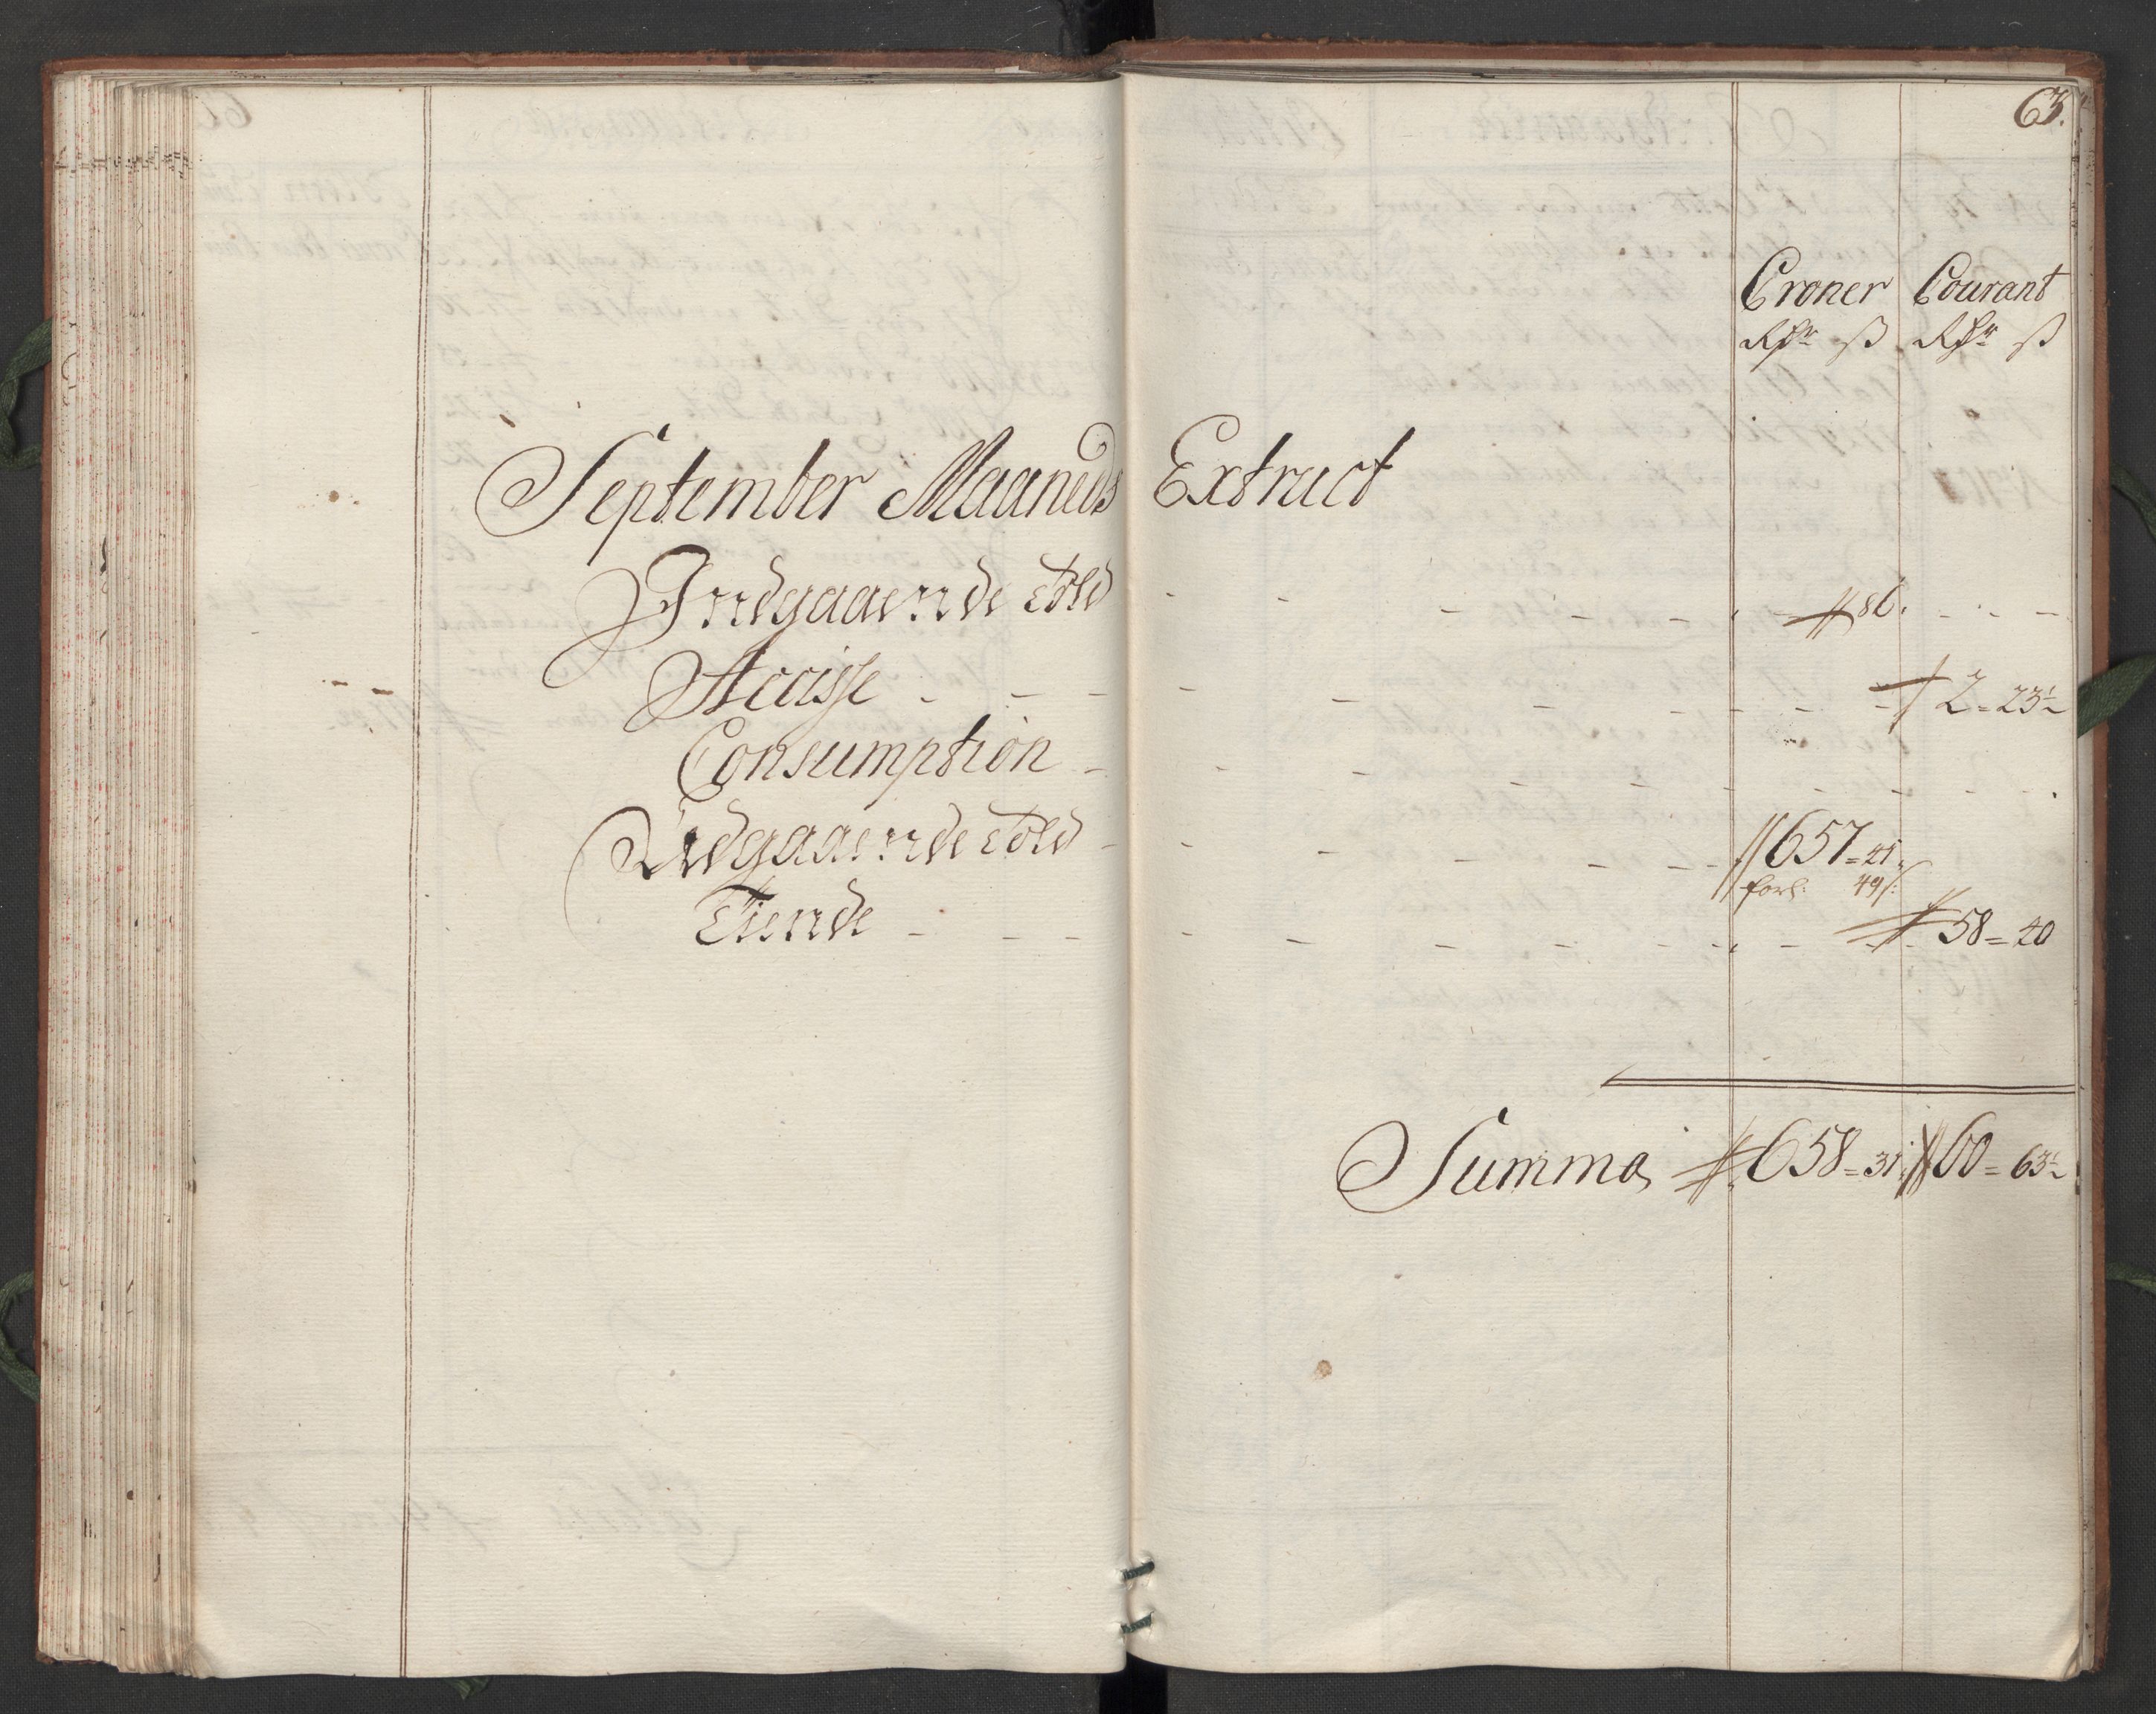 63.
Croner Courant
Rdr ß Rdr ß
September Maaneds Extract
Indgaaende Told - - - - - - - 86. - - -
Accisse - - - - - - - - - 2 = 23½
Consumption - - - - - - - - - -
Udgaaende Told - - - - - - 657 = 41.
forl: 49/:
Tiende - - - - - - - - - 58 = 40
Summa 658 = 31. 60 = 63½